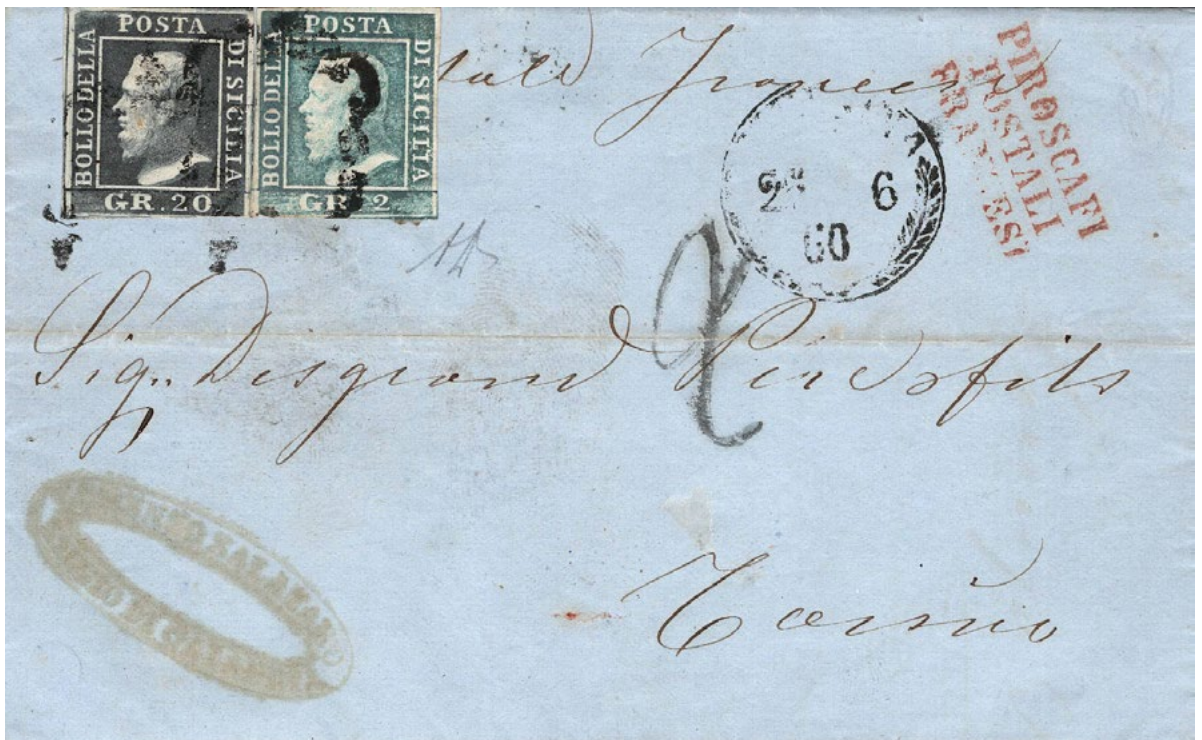 POSTA
BOLLO DELLA
DI SICILIA
GR. 20
POSTA
BOLLO DELLA
DI SICILIA
GR 2
PIROSCAFI
POSTALI
FRANCESI
6
60
2
Sig.r Desgrand Père & fils
Torino